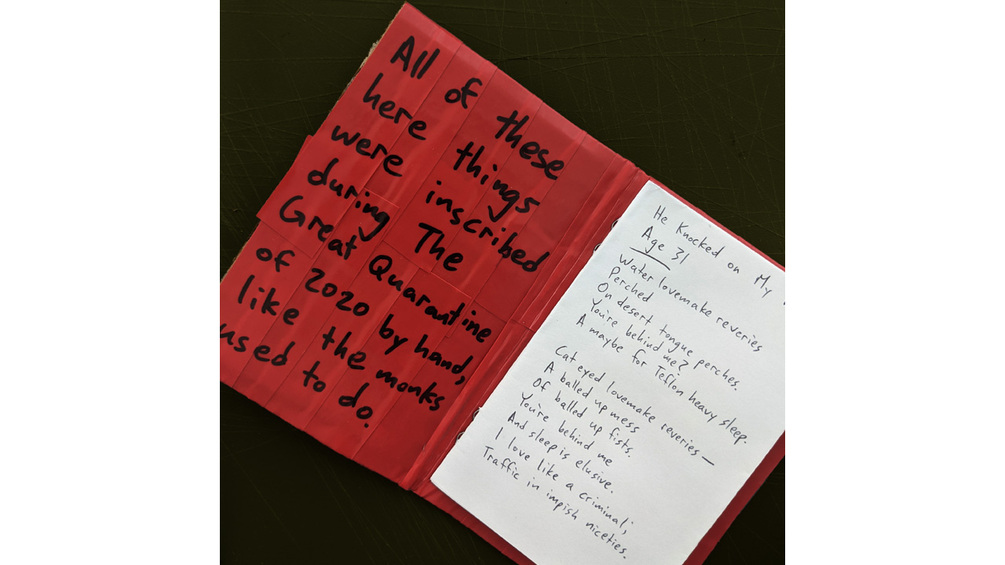 All of these
here things
were inscribed
during The
Great Quarantine
of 2020 by hand,
like the monks
used to do.
He Knocked on My
Age 31
Water lovemake reveries
Perched
On desert tongue perches.
You're behind me?
A maybe for Teflon heavy sleep.
Cat eyed lovemake reveries—
A balled up mess
Of balled up fists.
You're behind me
And sleep is elusive.
I love like a criminal;
Traffic in impish niceties.